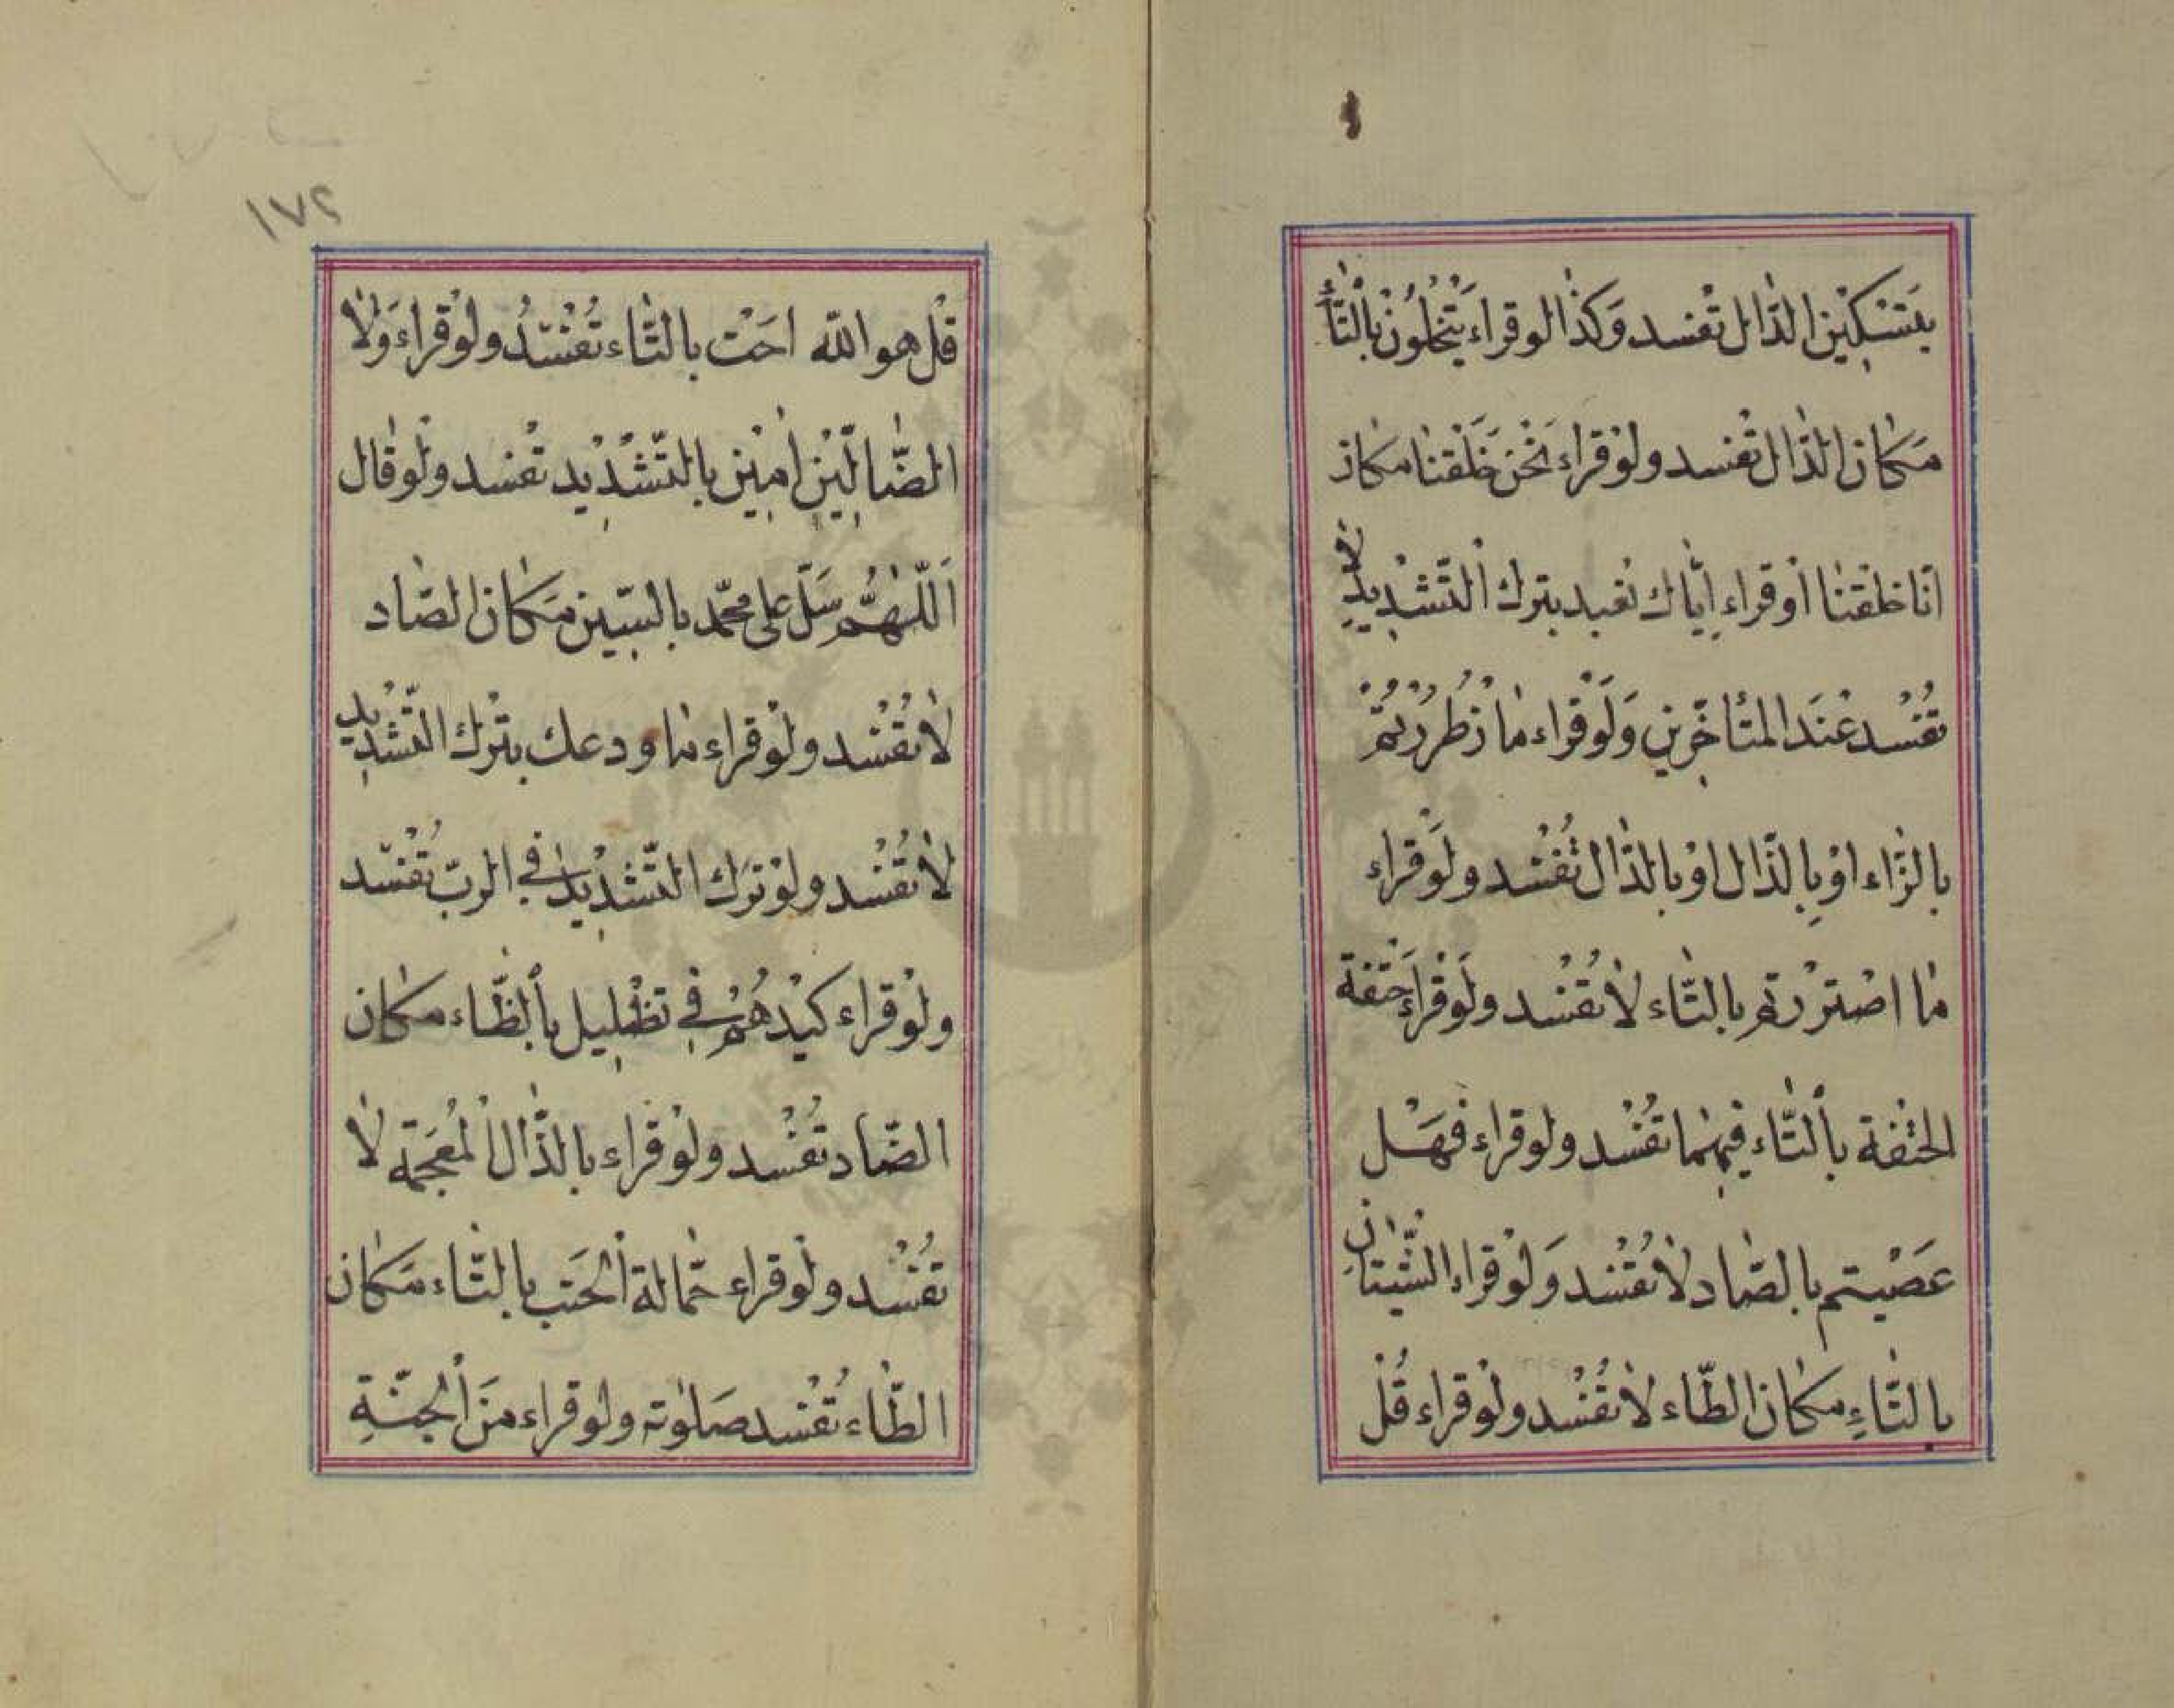 بتسكين الدّال تفسد وكذا لو قراء يتخلون بالتّاء
مكان الدّال تفسد ولو قراء نحن خلقنا مكان
انّا خلقنا او قراء ايّاك نعبد بترك التّشديد لا
تفسد عند المتأخّرين ولو قراء ما زطررتم
بالزّاء او بالذّال او بالدّال تفسد ولو قراء
ما اضتررتم بالتّاء لا تفسد ولو قراء ختفة
الختفة بالتّاء فيهما تفسد ولو قراء فهل
عصيتم بالصّاد لا تفسد ولو قراء الشّيتان
بالتّاء مكان الطّاء لا تفسد ولو قراء قل
١٧٢
قل هو اللّه احت بالتّاء تفسد ولو قراء ولا
الضّالّين امين بالتّشديد تفسد ولو قال
اللّهمّ سلّ على محمّد بالسّين مكان الصّاد
لا تفسد ولو قراء ما ودعك بترك التّشديد
لا تفسد ولو ترك التّشديد في الربّ تفسد
ولو قراء كيدهم في تظليل بالظّاء مكان
الضّاد تفسد ولو قراء بالذّال المعجمة لا
تفسد ولو قراء حمّالة الحتب بالتّاء مكان
الطّاء تفسد صلوته ولو قراء من الجنّة